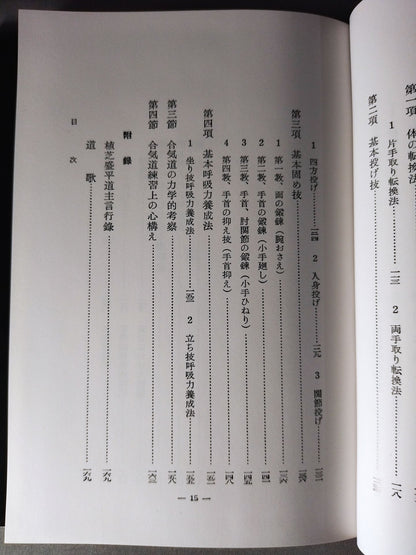 第一項 体の転換法
1 片手取り転換法……一一三 2 両手取り転換法……一一八
第二項 基本投げ技……
1 四方投げ……一二四 2 入身投げ……一二九 3 関節投げ……
第三項 基本固め技……一三六
1 第一教、面の鍛錬(腕おさえ)……一三六
2 第二教、手首の鍛錬(小手廻し)……一四一
3 第三教、手首、肘関節の鍛錬(小手ひねり)……一四四
4 第四教、手首の抑え技(手首抑え)……一四八
第四項 基本呼吸力養成法……一五二
1 坐り技呼吸力養成法……一五二 2 立ち技呼吸力養成法……一五五
第三節 合気道の力学的考察……一五九
第四節 合気道練習上の心構え……一六三
附録
植芝盛平道主言行録……一六九
道歌……一六九
目次
― 15 ―